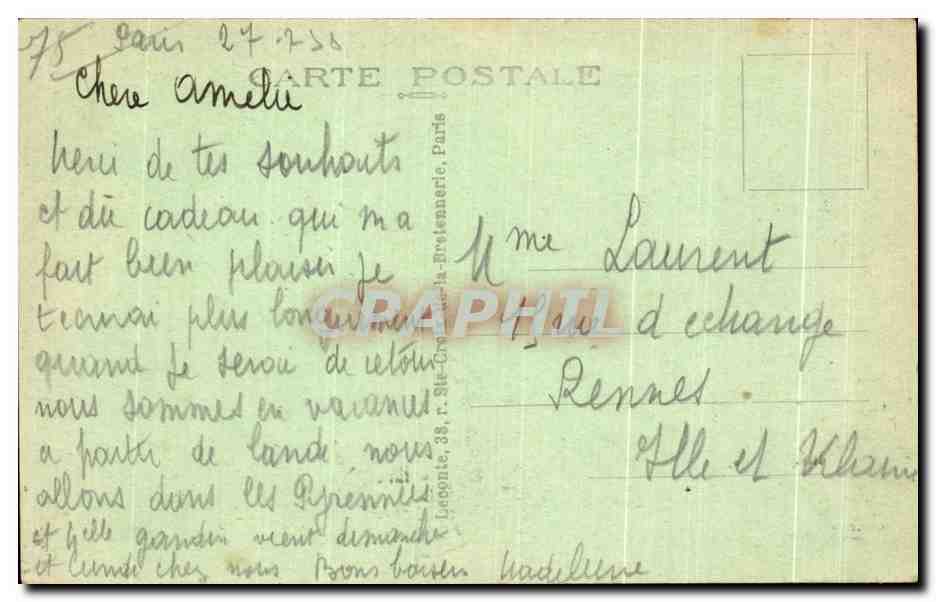 75 Paris 27
CARTE POSTALE
Chere Amelie
Merci de tes souhaits
et du cadeau qui m a
fait bien plaisir je
t ecrirai plus longuement
quand je serai de retour
nous sommes en vacances
a partir de lundi nous
allons dans les Pyrennées
et Melle grandin vient dimanche
et lundi chez nous Bons baisers Madeleine
Leconte, 38, r. Ste-Croix-de-la-Bretonnerie, Paris
Mme Laurent
rue d echange
Rennes
Ille et Vilaine
CRAPHIL